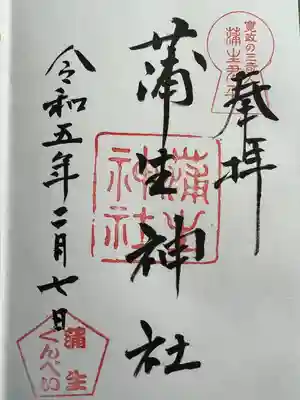 奉拝
寛政の三奇
蒲生君平
蒲生神社
蒲生神社
令和五年二月七日
蒲生
くんぺい